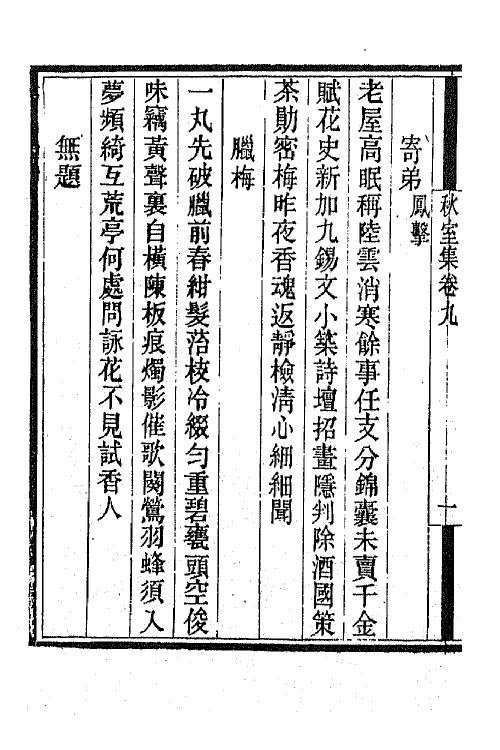 秋室集卷九
一
寄弟鳳擊
老屋高眠稱陸雲消寒餘事任支分錦囊未賣千金
賦花史新加九錫文小築詩壇招畫隱判除酒國策
茶勛密梅昨夜香魂返靜檢清心細細聞
臘梅
一丸先破臘前春紺髮菭枝冷綴勻重碧甕頭空俊
味竊黃聲裏自橫陳板痕燭影催歌闋鶯羽蜂須入
夢頻綺互荒亭何處問詠花不見試香人
無題